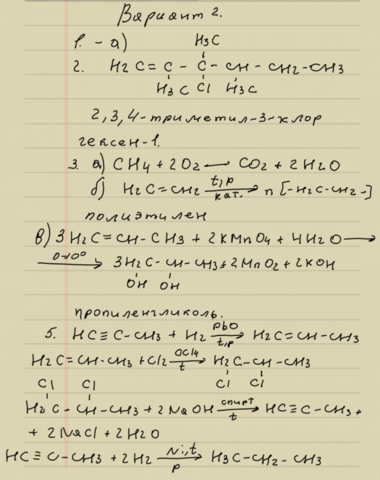 Вариант 2.
1. - а)
H₃C
2. H₂C = C - C - CH - CH₂ - CH₃
H₃C Cl H₃C
2,3,4-триметил-3-хлор
гексен-1.
3. а) CH₄ + 2O₂ → CO₂ + 2H₂O
б) H₂C = CH₂ t,p кат. → n [-H₂C-CH₂-]
полиэтилен
в) 3H₂C = CH - CH₃ + 2KMnO₄ + 4H₂O →
0-10° → 3H₂C - CH - CH₃ + 2MnO₂ + 2KOH
OH OH
пропиленгликоль.
5. HC ≡ C - CH₃ + H₂ PbO t,p → H₂C = CH - CH₃
H₂C = CH - CH₃ + Cl₂ CCl₄ t → H₂C - CH - CH₃
Cl Cl Cl Cl
H₂C - CH - CH₃ + 2NaOH спирт t → HC ≡ C - CH₃ +
+ 2NaCl + 2H₂O
HC ≡ C - CH₃ + 2H₂ Ni,t p → H₃C - CH₂ - CH₃